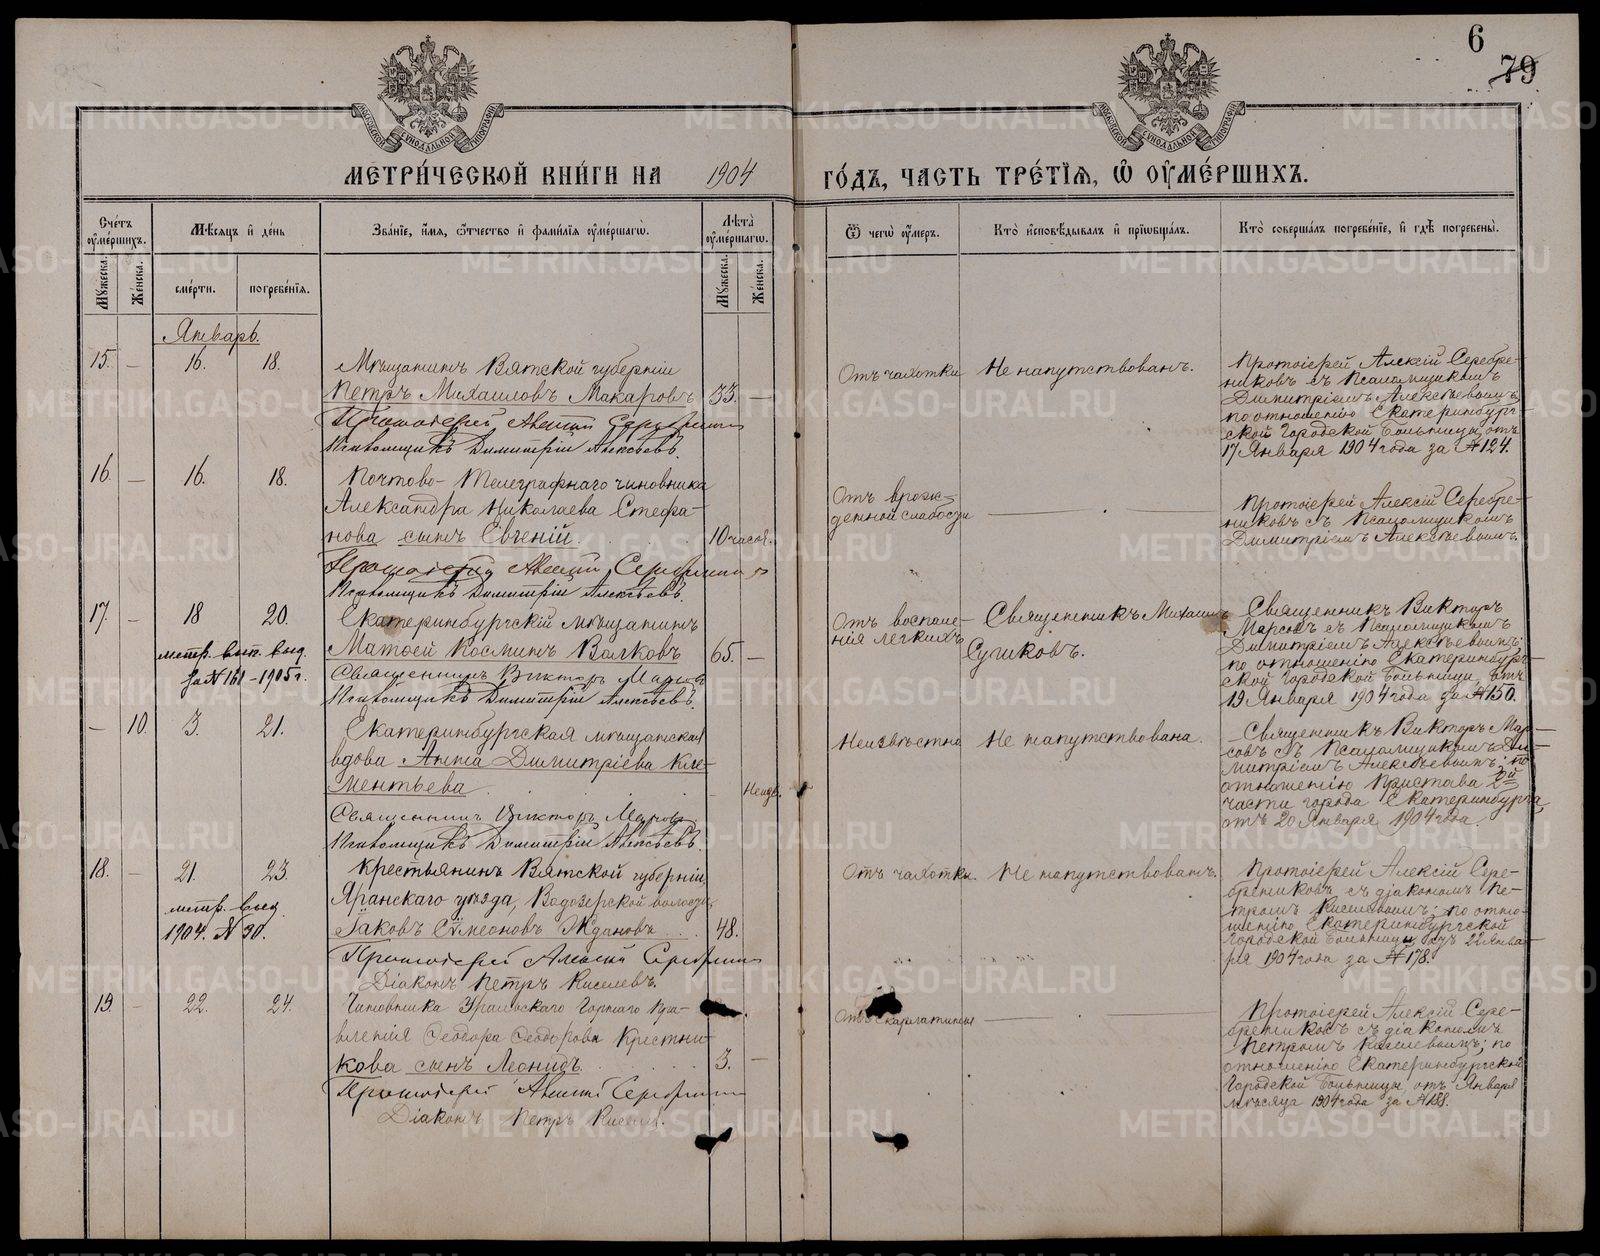 6
79
МЕТРИЧЕСКОЙ КНИГИ НА 1904 ГОДЪ, ЧАСТЬ ТРЕТІЯ, Ѿ ОУМЕРШИХЪ.
Счетъ оумершихъ.
Мѣсяцъ и день
Званіе, имя, ѿчество и фамилія оумершагѡ.
Лѣта оумершагѡ.
Ѿ чегѡ оумеръ.
Кто исповѣдывалъ и пріобщалъ.
Кто совершалъ погребеніе, и гдѣ погребены.
Мужеска.
Женска.
смерти.
погребенія.
Мужеска.
Женска.
Январь.
15. – 16. 18.
Мѣщанинъ Вятской губерніи
Петръ Михаиловъ Макаровъ 33. –
Протоіерей Алексій Серебренниковъ
Псаломщикъ Димитрій Алексѣевъ.
Отъ чахотки
Не напутствованъ.
Протоіерей Алексій Серебре-
никовъ съ Псаломщикомъ
Димитріемъ Алексѣевымъ,
по отношенію Екатеринбург-
ской Городской Больницы, отъ
17 Января 1904 года за № 124.
16. – 16. 18.
Почтово-Телеграфнаго чиновника
Александра Николаева Стефа-
нова сынъ Евгеній. 10 часов.
Протоіерей Алексій Серебренниковъ
Псаломщикъ Димитрій Алексѣевъ.
Отъ врож-
денной слабости
Протоіерей Алексій Серебре-
никовъ съ Псаломщикомъ
Димитріемъ Алексѣевымъ.
17. – 18 20.
метр. вып. выд.
за № 161 – 1905 г.
Екатеринбургскій мѣщанинъ
Матвей Космичъ Волковъ 65. –
Священникъ Викторъ Марсовъ
Псаломщикъ Димитрій Алексѣевъ.
Отъ воспале-
нія легкихъ
Священникъ Михаилъ
Сушковъ.
Священникъ Викторъ
Марсовъ съ Псаломщикомъ
Димитріемъ Алексѣевымъ;
по отношенію Екатеринбург-
ской Городской Больницы, отъ
19 Января 1904 года за № 150.
– 10. 3. 21.
Екатеринбургская мѣщанская
вдова Анна Димитріева Кле-
ментьева. Неизв.
Священникъ Викторъ Марсовъ
Псаломщикъ Димитрій Алексѣевъ.
Неизвѣстно
Не напутствована.
Священникъ Викторъ Мар-
совъ съ Псаломщикомъ Ди-
митріемъ Алексѣевымъ; по
отношенію Пристава 2й
части города Екатеринбурга,
отъ 20 Января 1904 года.
18. – 21. 23.
метр. выд.
1904. № 30.
Крестьянинъ Вятской губерніи,
Яранскаго уѣзда, Водозерской волости,
Іаковъ Сѵмеоновъ Ждановъ 48.
Протоіерей Алексій Серебренниковъ
Діаконъ Петръ Киселевъ.
Отъ чахотки.
Не напутствованъ.
Протоіерей Алексій Сере-
бренниковъ съ діакономъ Пе-
тромъ Киселевымъ; по отно-
шенію Екатеринбургской
Городской Больницы отъ 22 Янва-
ря 1904 года за № 178.
19. – 22. 24.
Чиновника Уральскаго Горнаго Пра-
вленія Ѳеодора Ѳеодорова Крестни-
кова сынъ Леонидъ. 3. –
Протоіерей Алексій Серебренниковъ
Діаконъ Петръ Киселевъ.
Отъ скарлатины
Протоіерей Алексій Сере-
бренниковъ съ діакономъ
Петромъ Киселевымъ; по
отношенію Екатеринбургской
Городской Больницы отъ Января
мѣсяца 1904 года за № 188.
METRIKI.GASO-URAL.RU